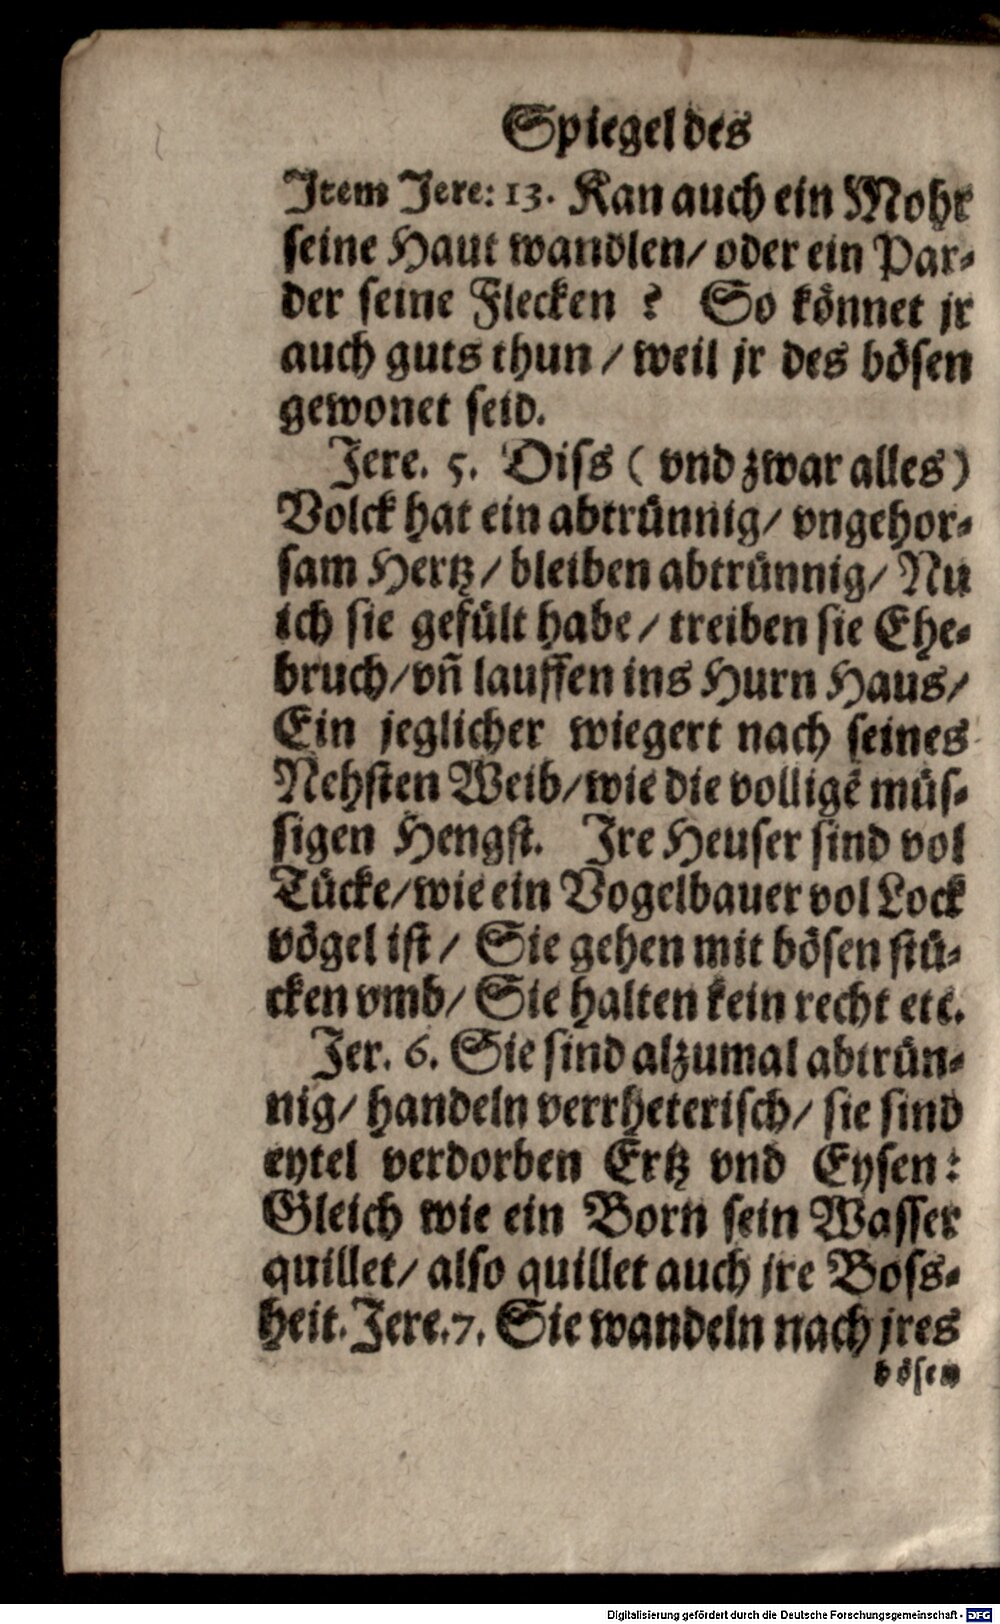 Spiegel des
Item Jere: 13. Kan auch ein Mohr
seine Haut wandlen/ oder ein Par-
der seine Flecken ? So könnet jr
auch guts thun / weil jr des bösen
gewonet seid.
Jere. 5. Diss ( vnd zwar alles )
Volck hat ein abtrünnig/ vngehor-
sam Hertz / bleiben abtrünnig/ Nu
ich sie gefült habe / treiben sie Ehe-
bruch/ vñ lauffen ins Hurn Haus/
Ein jeglicher wiegert nach seines
Nehsten Weib/ wie die volligē müs-
sigen Hengst. Ire Heuser sind vol
Tücke/ wie ein Vogelbauer vol Lock
vögel ist / Sie gehen mit bösen stü-
cken vmb/ Sie halten kein recht etc.
Jer. 6. Sie sind alzumal abtrün-
nig/ handeln verrheterisch/ sie sind
eytel verdorben Ertz vnd Eysen:
Gleich wie ein Born sein Wasser
quillet/ also quillet auch jre Boss-
heit. Jere. 7. Sie wandeln nach jres
bösen
Digitalisierung gefördert durch die Deutsche Forschungsgemeinschaft - DFG